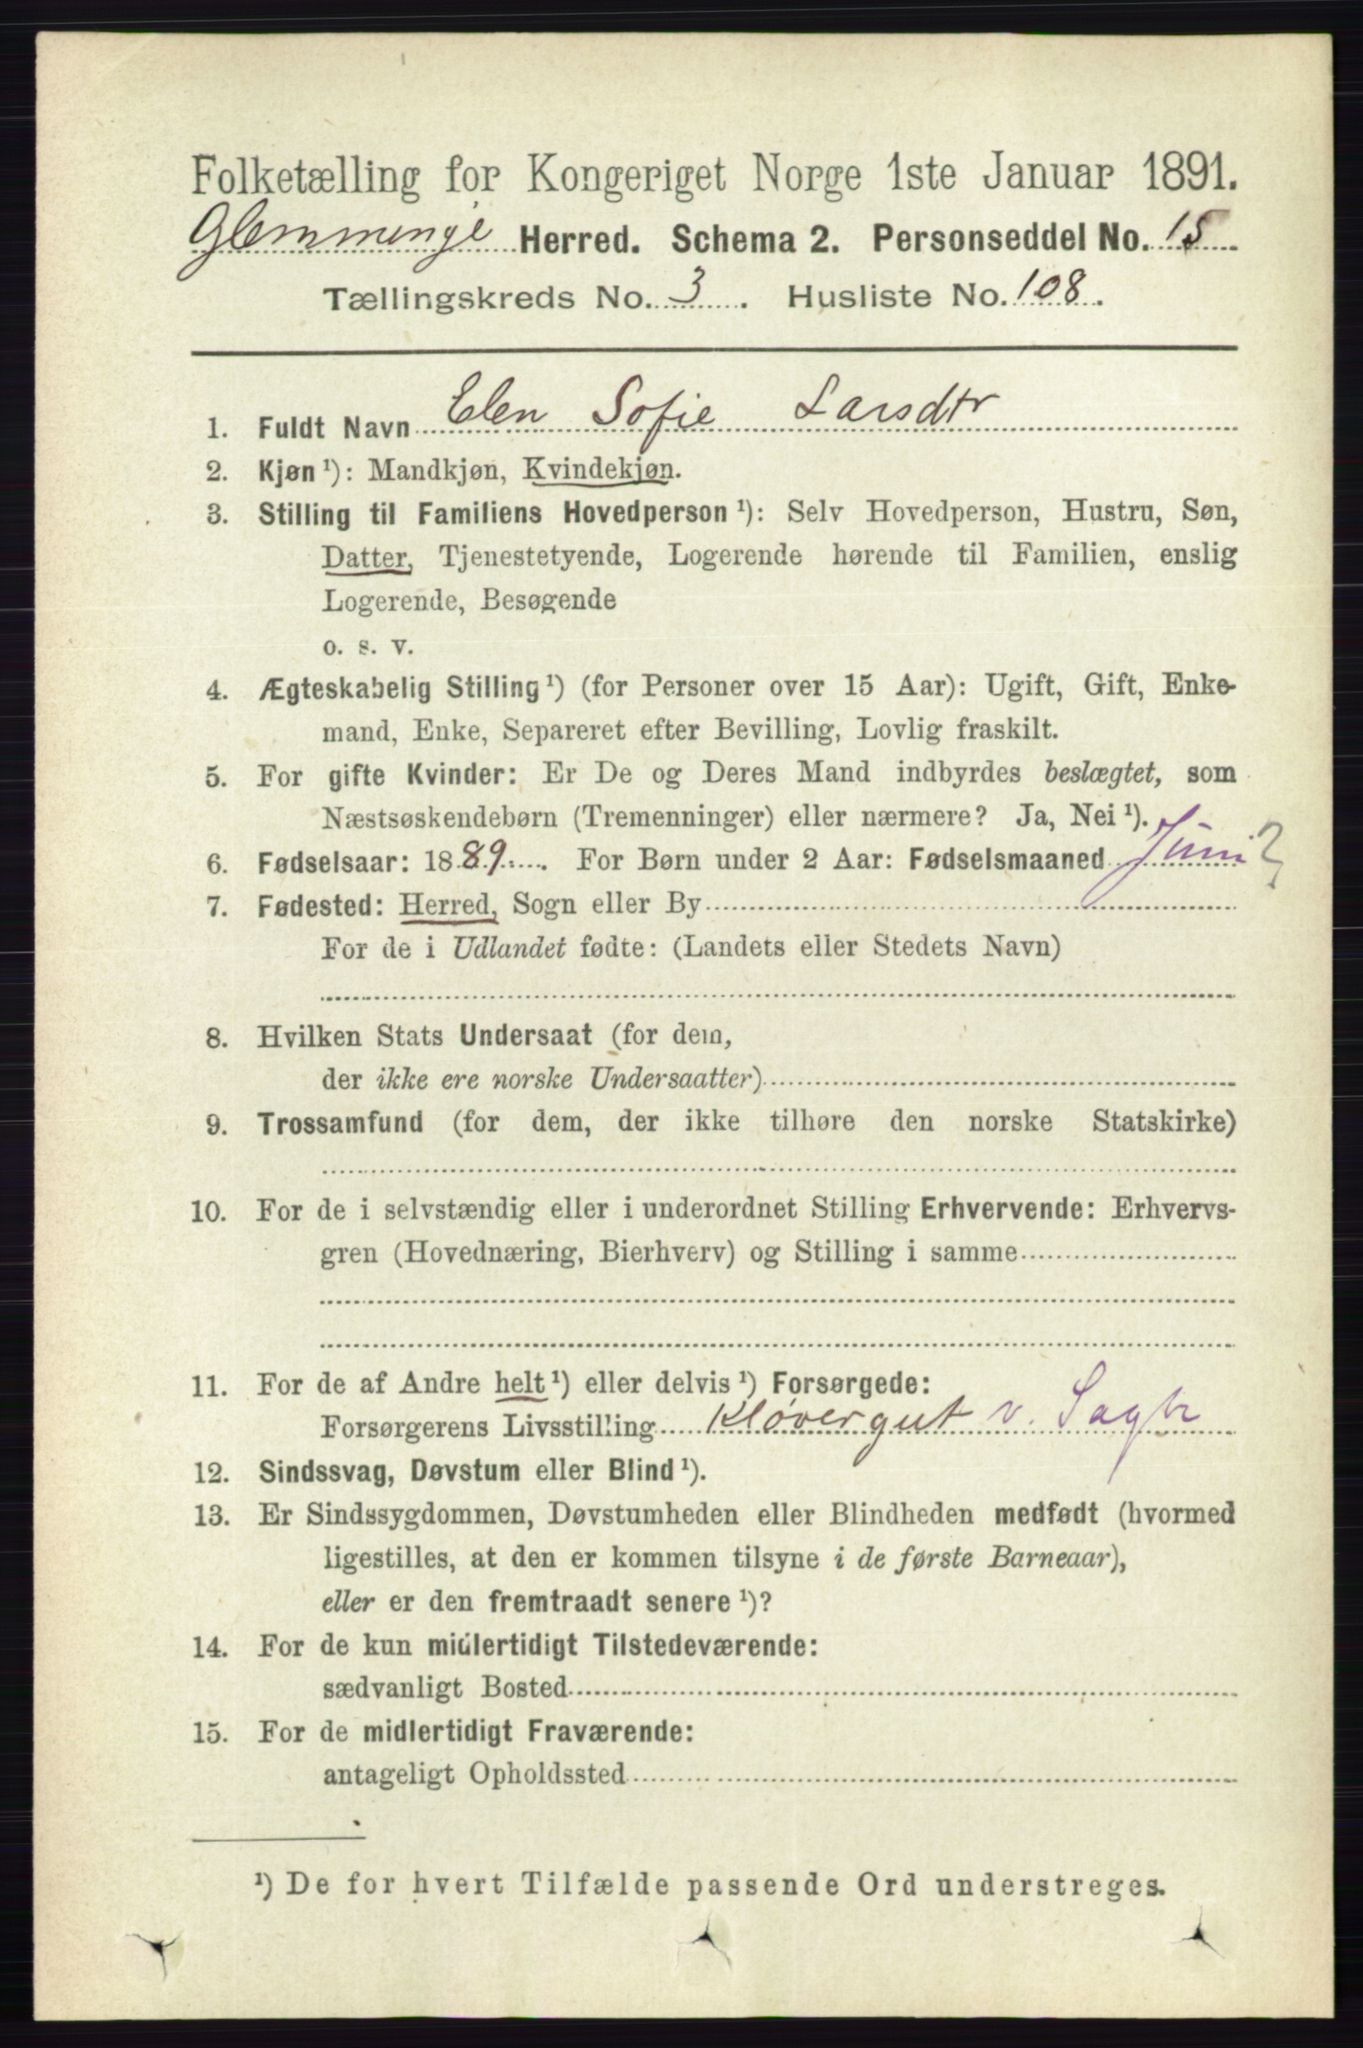 Folketælling for Kongeriget Norge 1ste Januar 1891.
Glemminge Herred. Schema 2. Personseddel No. 15
Tællingskreds No. 3. Husliste No. 108.
1. Fuldt Navn Elen Sofie Larsdtr
2. Kjøn ¹): Mandkjøn, Kvindekjøn.
3. Stilling til Familiens Hovedperson ¹): Selv Hovedperson, Hustru, Søn,
Datter, Tjenestetyende, Logerende hørende til Familien, enslig
Logerende, Besøgende
o. s. v.
4. Ægteskabelig Stilling ¹) (for Personer over 15 Aar): Ugift, Gift, Enke-
mand, Enke, Separeret efter Bevilling, Lovlig fraskilt.
5. For gifte Kvinder: Er De og Deres Mand indbyrdes beslægtet, som
Næstsøskendebørn (Tremenninger) eller nærmere? Ja, Nei ¹).
6. Fødselsaar: 1889. For Børn under 2 Aar: Fødselsmaaned Juni ?
7. Fødested: Herred, Sogn eller By
For de i Udlandet fødte: (Landets eller Stedets Navn)
8. Hvilken Stats Undersaat (for dem,
der ikke ere norske Undersaatter)
9. Trossamfund (for dem, der ikke tilhøre den norske Statskirke)
10. For de i selvstændig eller i underordnet Stilling Erhvervende: Erhvervs-
gren (Hovednæring, Bierhverv) og Stilling i samme
11. For de af Andre helt ¹) eller delvis ¹) Forsørgede:
Forsørgerens Livsstilling Kløvergut v. Sagbr
12. Sindssvag, Døvstum eller Blind ¹).
13. Er Sindssygdommen, Døvstumheden eller Blindheden medfødt (hvormed
ligestilles, at den er kommen tilsyne i de første Barneaar),
eller er den fremtraadt senere ¹)?
14. For de kun midlertidigt Tilstedeværende:
sædvanligt Bosted
15. For de midlertidigt Fraværende:
antageligt Opholdssted
¹) De for hvert Tilfælde passende Ord understreges.